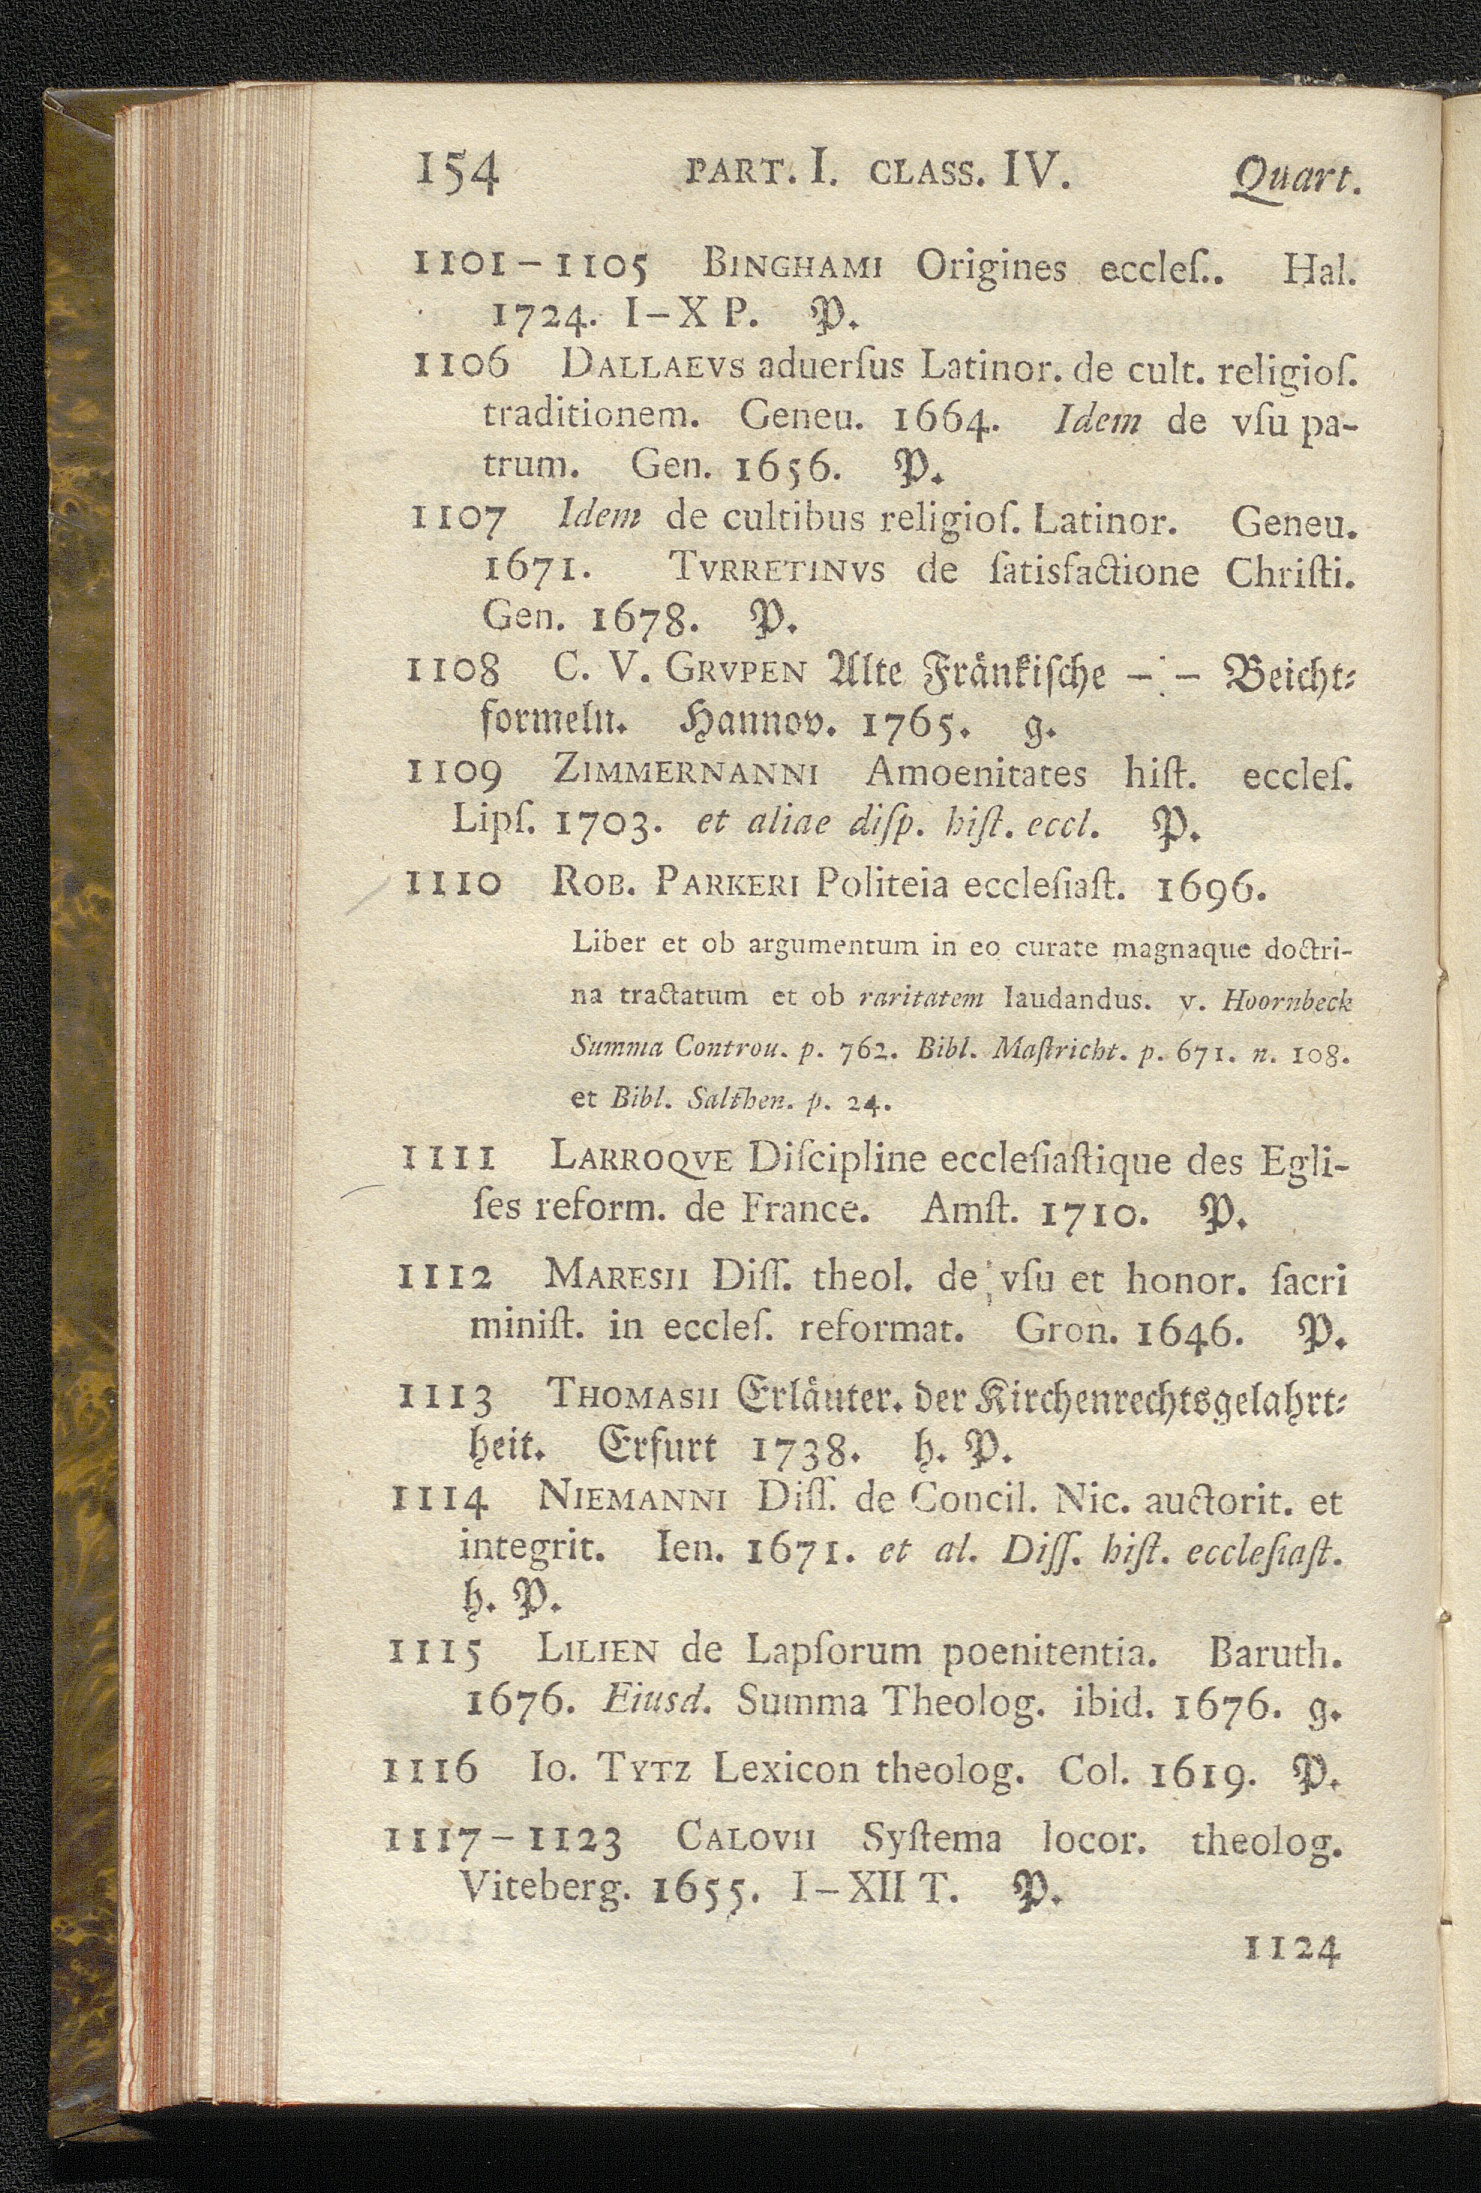 154 PART. I. CLASS. IV. Quart.
1101–1105 BINGHAMI Origines eccleſ.. Hal.
1724. I–X P. P.
1106 DALLAEVS aduerſus Latinor. de cult. religioſ.
traditionem. Geneu. 1664. Idem de vſu pa-
trum. Gen. 1656. P.
1107 Idem de cultibus religioſ. Latinor. Geneu.
1671. TVRRETINVS de ſatisfactione Chriſti.
Gen. 1678. P.
1108 C. V. GRVPEN Alte Fränkiſche – – Beicht-
formeln. Hannov. 1765. g.
1109 ZIMMERNANNI Amoenitates hiſt. eccleſ.
Lipſ. 1703. et aliae diſp. hiſt. eccl. P.
1110 ROB. PARKERI Politeia eccleſiaſt. 1696.
Liber et ob argumentum in eo curate magnaque doctri-
na tractatum et ob raritatem laudandus. v. Hoornbeck
Summa Controu. p. 762. Bibl. Maſtricht. p. 671. n. 108.
et Bibl. Salthen. p. 24.
1111 LARROQVE Diſcipline eccleſiaſtique des Egli-
ſes reform. de France. Amſt. 1710. P.
1112 MARESII Diſſ. theol. de vſu et honor. ſacri
miniſt. in eccleſ. reformat. Gron. 1646. P.
1113 THOMASII Erläuter. der Kirchenrechtsgelahrt-
heit. Erfurt 1738. h. P.
1114 NIEMANNI Diſſ. de Concil. Nic. auctorit. et
integrit. Ien. 1671. et al. Diſſ. hiſt. eccleſiaſt.
h. P.
1115 LILIEN de Lapſorum poenitentia. Baruth.
1676. Eiusd. Summa Theolog. ibid. 1676. g.
1116 Io. TYTZ Lexicon theolog. Col. 1619. P.
1117–1123 CALOVII Syſtema locor. theolog.
Viteberg. 1655. I–XII T. P.
1124